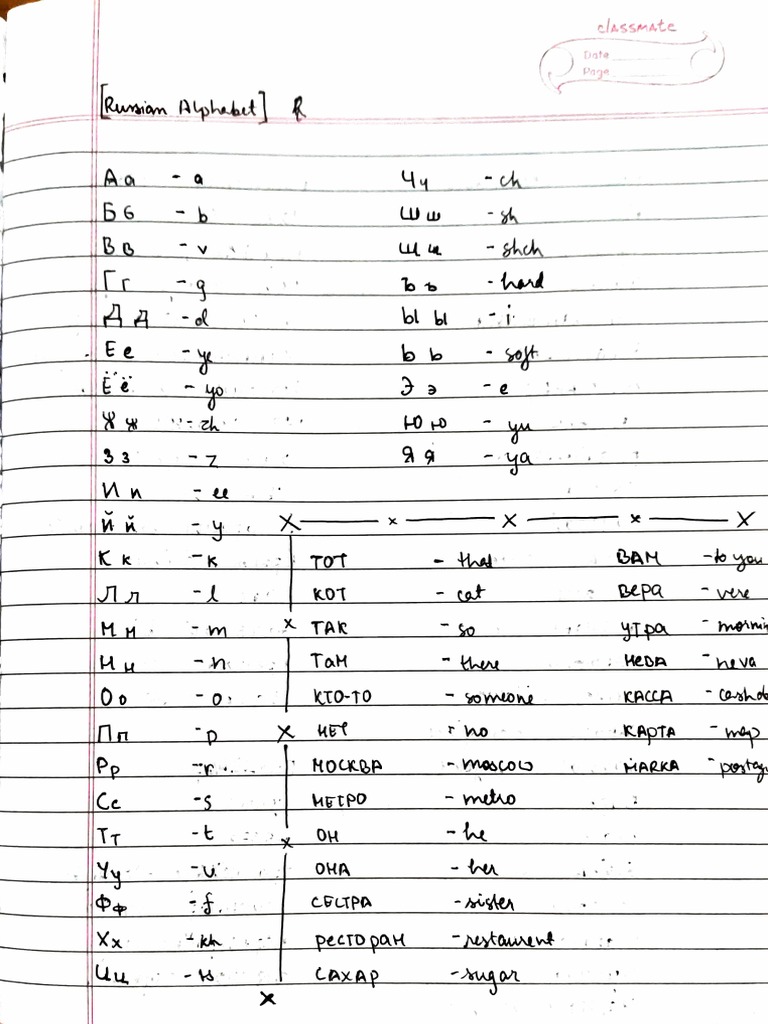 classmate
Date
Page
[Russian Alphabet]
Аа - a
Бб - b
Вв - v
Гг - g
Дд - d
Ее - ye
Ёё - yo
Жж - zh
Зз - z
Ии - ee
Йй - y
Кк - k
Лл - l
Мм - m
Нн - n
Оо - o
Пп - p
Рр - r
Сс - s
Тт - t
Уу - u
Фф - f
Хх - kh
Цц - ts
Чч - ch
Шш - sh
Щщ - shch
Ъъ - hard
Ыы - i
Ьь - soft
Ээ - e
Юю - yu
Яя - ya
ТОТ - that
КОТ - cat
ТАК - so
ТАМ - there
КТО-ТО - someone
НЕТ - no
МОСКВА - moscow
МЕТРО - metro
ОН - he
ОНА - her
СЕСТРА - sister
РЕСТОРАН - restaurent
САХАР - sugar
ВАМ - to you
ВЕРА - vere
УТРА - mornin
НЕВА - neva
КАССА - cashde
КАРТА - map
МАRКА - postag